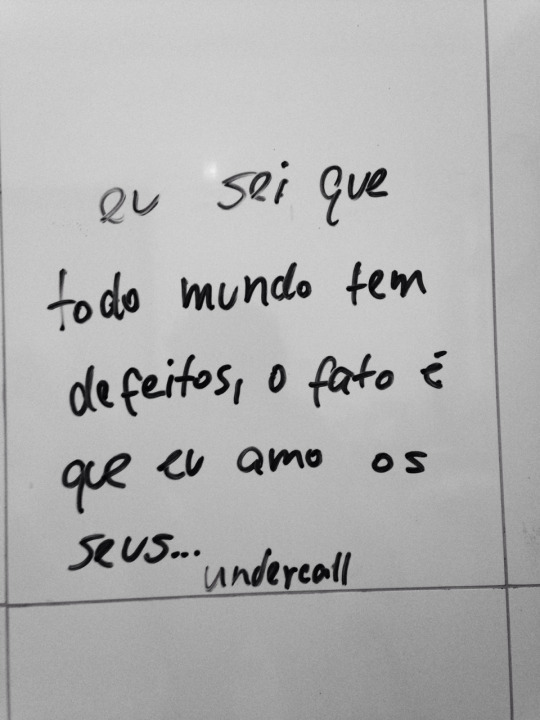 eu sei que
todo mundo tem
defeitos, o fato é
que eu amo os
seus...
undercall